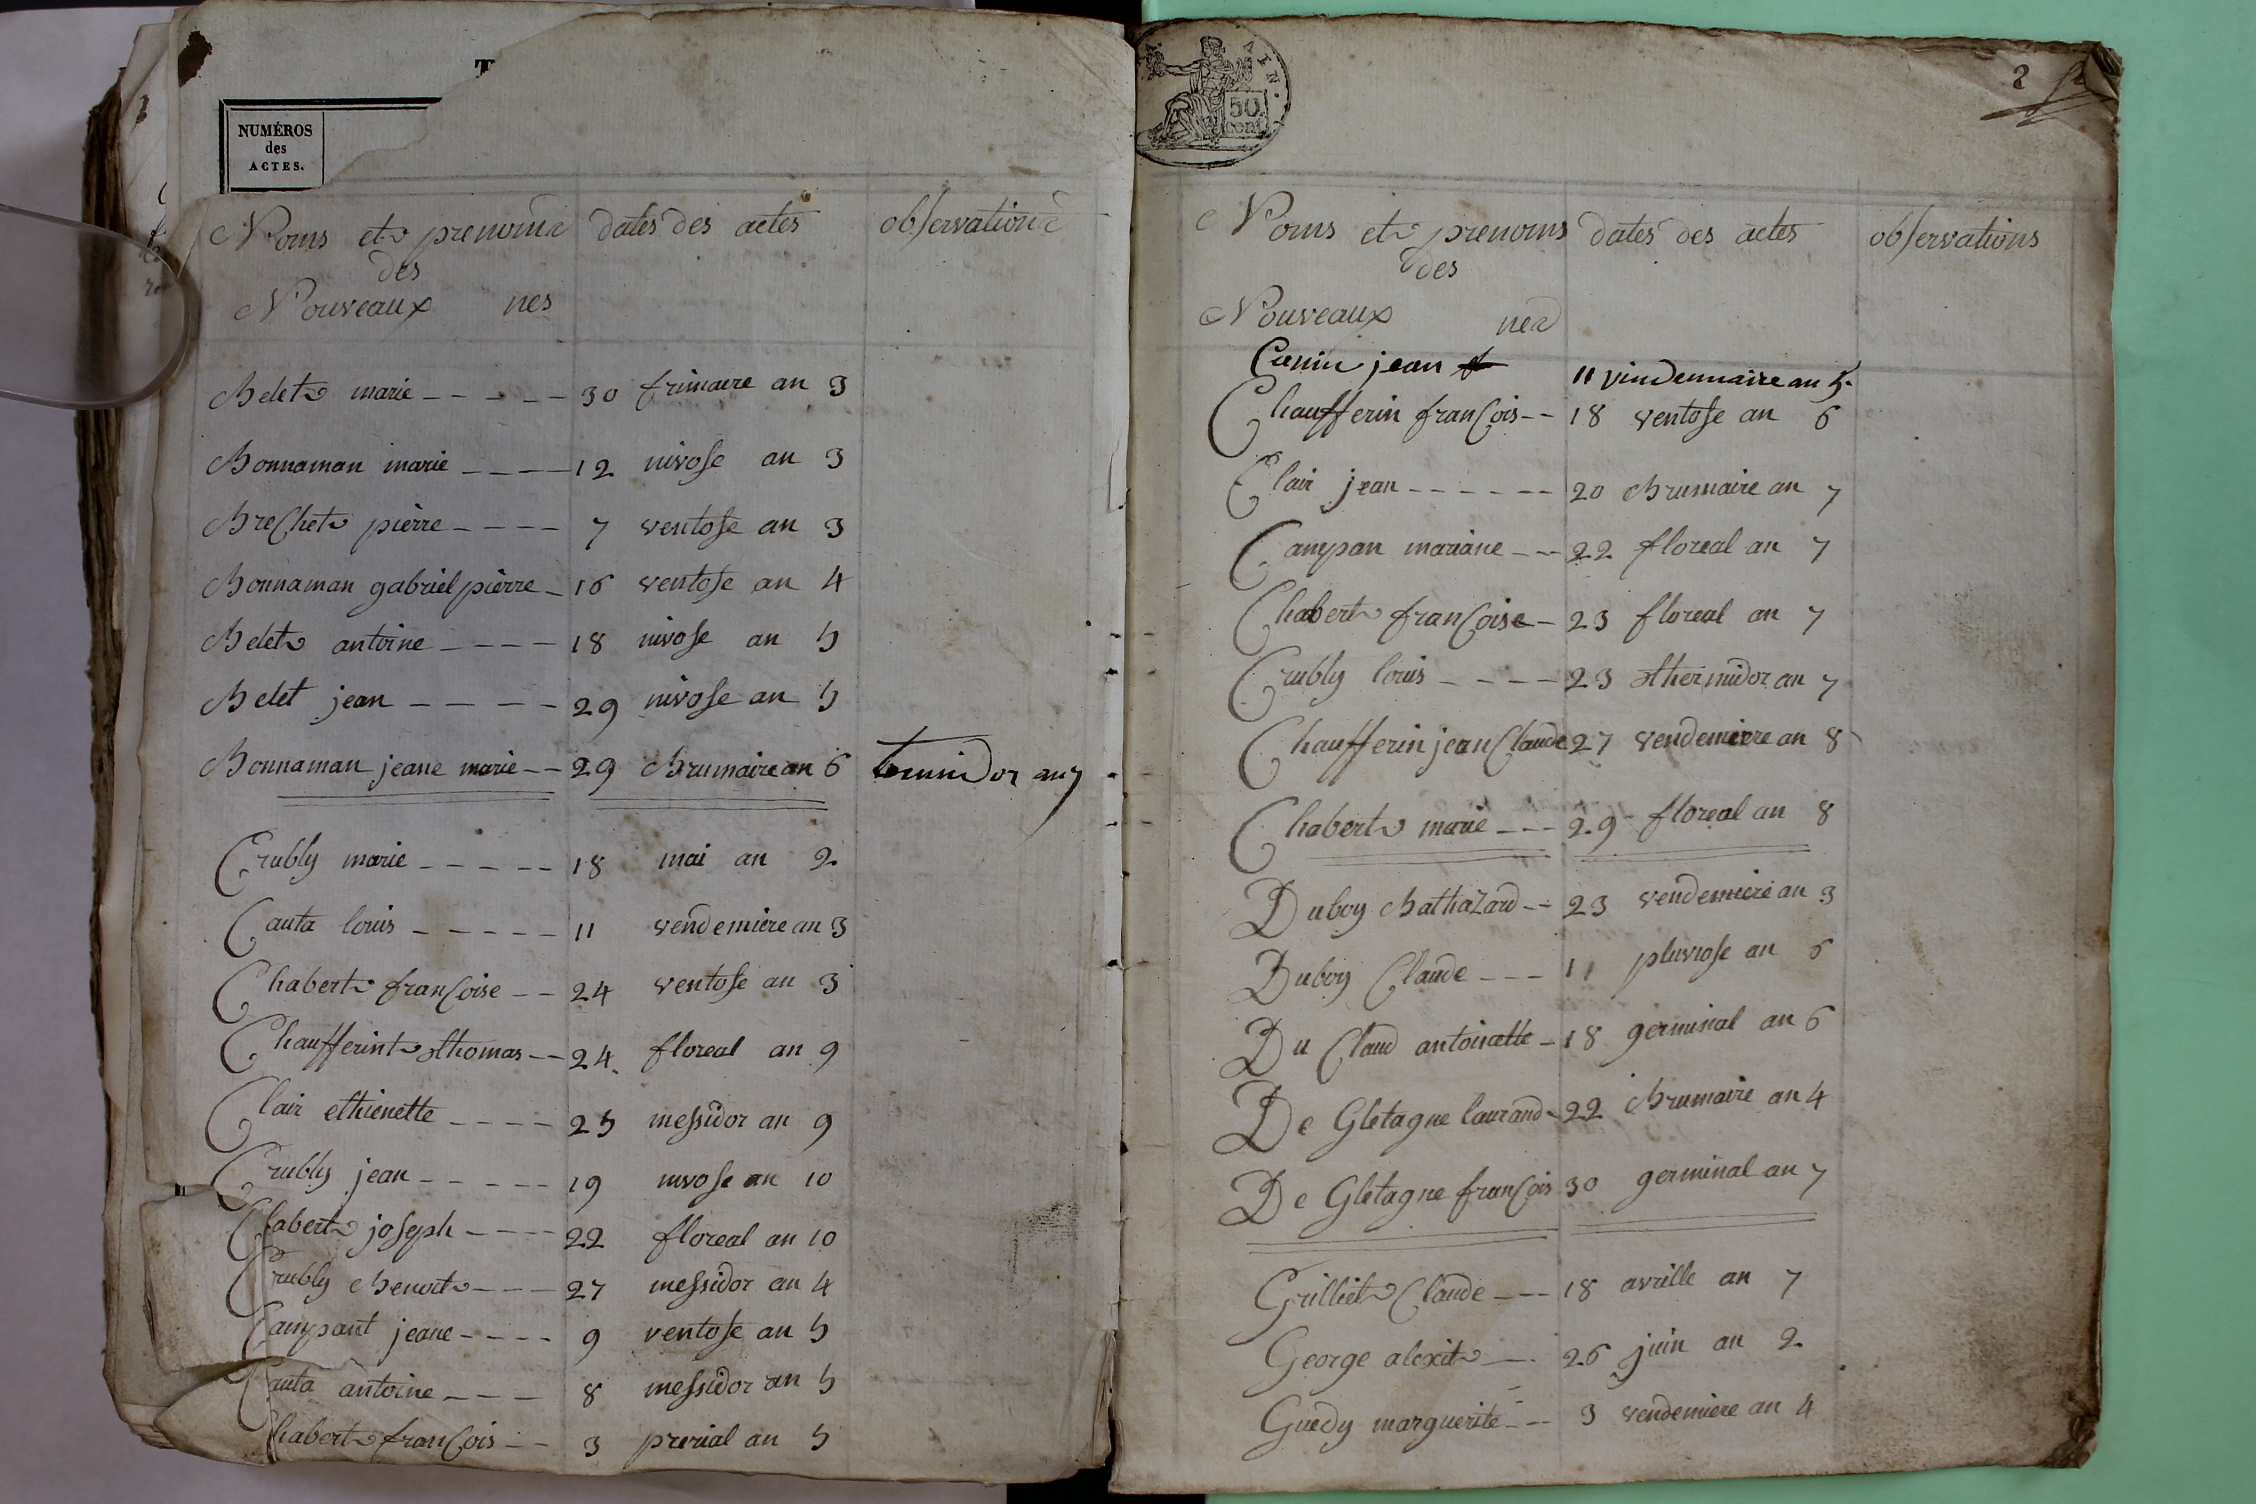 T
NUMÉROS
des
ACTES.
Noms et prenoms dates des actes observations
des
Nouveaux nes
Belet marie - - - - - 30 frimaire an 3
Bonnaman marie - - - - 12 nivose an 3
Brechet pierre - - - - 7 ventose an 3
Bonnaman gabriel pierre - 16 ventose an 4
Belet antoine - - - - 18 nivose an 5
Belet jean - - - - - 29 nivose an 5
Bonnaman jeane marie - - 29 Brumaire an 6 an 7
Crubly marie - - - - - 18 mai an 2
Cauta louis - - - - - 11 vendemiere an 3
Chabert francoise - - 24 ventose an 3
Chaufferint thomas - - 24 floreal an 9
Clair ethienette - - - - 25 messidor an 9
Crubly jean - - - - - 19 nivose an 10
Chabert joseph - - - - 22 floreal an 10
Crubly Benoit - - - 27 messidor an 4
Campant jeane - - - - 9 ventose an 5
Cauta antoine - - - 8 messidor an 5
Chabert francois - - 3 prerial an 5
50
cent
2
Noms et prenoms dates des actes observations
des
Nouveaux nes
Cunin jean 11 vindemiaire an 5.
Chaufferin francois - - 18 ventose an 6
Clair jean - - - - - - 20 Brumaire an 7
Campan mariane - - 22 floreal an 7
Chabert francoise - 23 floreal an 7
Crubly louis - - - - 23 thermidor an 7
Chaufferin jean Claude 27 vendemiere an 8
Chabert marie - - - 29 floreal an 8
Duboy Bathazard - - 23 vendemiere an 3
Duboy Claude - - - 11 pluviose an 6
Du Claud antoinette - 18 germinal an 6
De Gletagne laurand - 22 Brumaire an 4
De Gletagne francois 30 germinal an 7
Grilliet Claude - - - 18 avrille an 7
George alexit - - 26 juin an 2
Guedy marguerite - - 3 vendemiere an 4